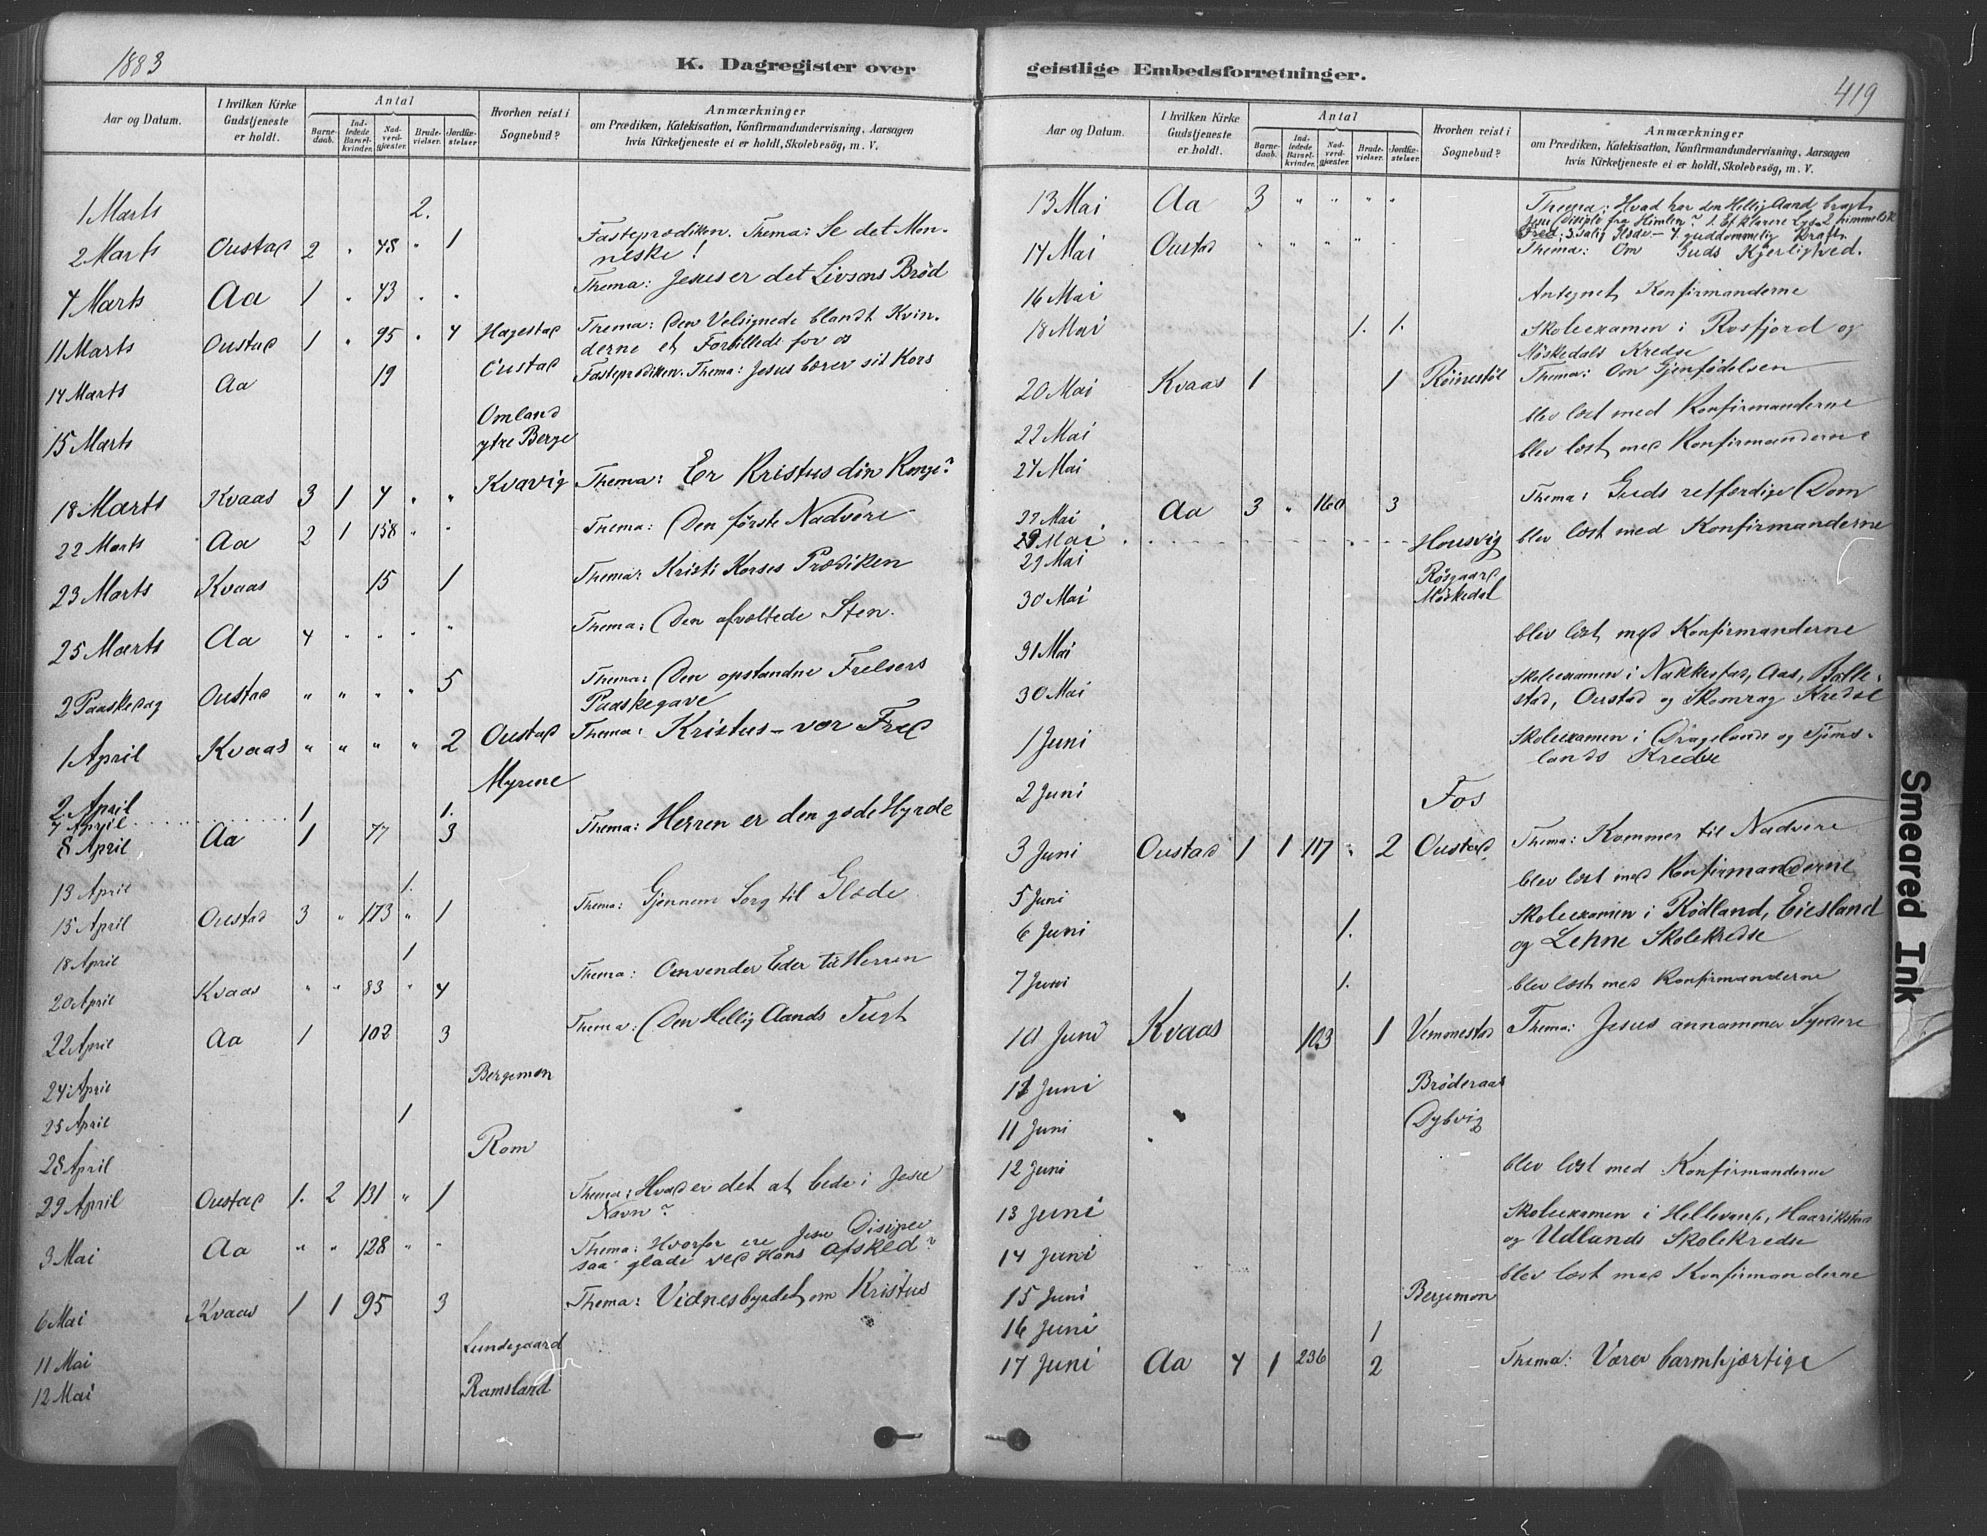 1883
K. Dagregister over
Aar og Datum.
I hvilken Kirke Gudstjeneste er holdt.
Antal
Barne-daab.
Ind-ledede Barsel-kvinder.
Nad-verd-gjæster.
Brude-vielser.
Jordfæ-stelser
Hvorhen reist i Sognebud?
Anmærkninger
om Prædiken, Katekisation, Konfirmandundervisning, Aarsagen
hvis Kirketjeneste ei er holdt, Skolebesög, m. V.
1 Marts 2.
2 Marts Oustad 2 " 48 " 1 Fasteprædiken. Thema: Se det Men-
neske!
4 Marts Aa 1 " 43 " " Thema: Jesus er det Livsens Brød
11 Marts Oustad 1 " 95 " 4 Hagestad Thema: Den Velsignede blandt Kvin-
derne et Forbillede for os
14 Marts Aa 19 Oustad Fasteprædiken. Thema: Jesus bærer sit Kors
15 Marts Omland
ytre Berge
18 Marts Kvaas 3 1 4 " " Kvavig Thema: Er Kristus din Konge?
22 Marts Aa 2 1 158 " " Thema: Den første Nadvere
23 Marts Kvaas 15 1 Thema: Kristi Korses Prædiken
25 Marts Aa 4 " " " " Thema: Den afvæltede Sten.
2 Paaskedag Oustad " " " " 5 Thema: Den opstandne Frelsers
Paaskegave
1 April Kvaas " " " " 2 Oustad Thema: Kristus – vor Fred
Myrene
2 April
7 April 1 1.
8 April Aa 1 77 3 Thema: Herren er den gode Hyrde
13 April 1.
15 April Oustad 3 " 173 " 1 Thema: Gjennem Sorg til Glæde
18 April 1
20 April Kvaas " " 83 " 4 Thema: Omvender Eder til Herren
22 April Aa 1 102 3 Thema: Den Hellig Aands Tugt
24 April Bergemon
25 April 1
28 April Rom
29 April Oustad 1. 2 131 " 1 Thema: Hvad er det at bede i Jesu
Navn?
3 Mai Aa " " 128 " " Thema: Hvorfor ere Jesu Disiple
saa glade ved Hans Afsked?
6 Mai Kvaas 1 1 95 3 Thema: Vidnesbyrdet om Kristus
11 Mai Lundegaard
12 Mai Ramsland
geistlige Embedsforretninger.
419
Aar og Datum.
I hvilken Kirke Gudstjeneste er holdt.
Antal
Barne-daab.
Ind-ledede Barsel-kvinder.
Nad-verd-gjæster.
Brude-vielser.
Jordfæ-stelser.
Hvorhen reist i Sognebud?
Anmærkninger
om Prædiken, Katekisation, Konfirmandundervisning, Aarsagen
hvis Kirketjeneste ei er holdt, Skolebesög, m. V.
13 Mai Aa 3 " " " " Thema: Hvad har den Hellig Aand bragt
Jesu Disiple fra Himlen? 1. Et klarere Lys 2 himmelsk
Fred, 3 salig Glæde – 4 guddommelig Kraft.
14 Mai Oustad " " " " " Thema: Om Guds Kjerlighed.
16 Mai Antegnet Konfirmanderne
18 Mai 1. 1. Skoleexamen i Rosfjord og
Møskedals Kredse
20 Mai Kvaas 1 1 Röinestöl Thema: Om Gjenfødelsen
22 Mai blev læst med Konfirmanderne
24 Mai blev læst med Konfirmanderne
27 Mai Aa 3 " 160 3 Thema: Guds retfærdige Dom
29 Mai Housvig blev læst med Konfirmanderne
29 Mai Røsgaard
30 Mai Møskedal
31 Mai blev læst med Konfirmanderne
30 Mai Skoleexamen i Nakkestad, Aas, Balle-
stad, Oustad og Skomrag Kredse
1 Juni Skoleexamen i Dragelands og Tjøms-
lands Kredse
2 Juni Fos
3 Juni Oustad 1 1 117 " 2 Oustad. Thema: Kommer til Nadvere
5 Juni blev læst med Konfirmanderne
6 Juni 1. Skoleexamen i Rødland, Eiesland
og Lehne Skolekredse
7 Juni 1. blev læst med Konfirmanderne
10 Juni Kvaas 103 1 Vemmestad Thema: Jesus annammer Syndere
11 Juni Brøderaas
11 Juni Dybvig
12 Juni blev læst med Konfirmanderne
13 Juni Skoleexamen i Hellevand, Haarikstad
og Udlands Skolekredse
14 Juni blev læst med Konfirmanderne
15 Juni Bergemon
16 Juni 1
17 Juni Aa 4 1 236 2 Thema: Værer barmhjærtige
Smeared Ink